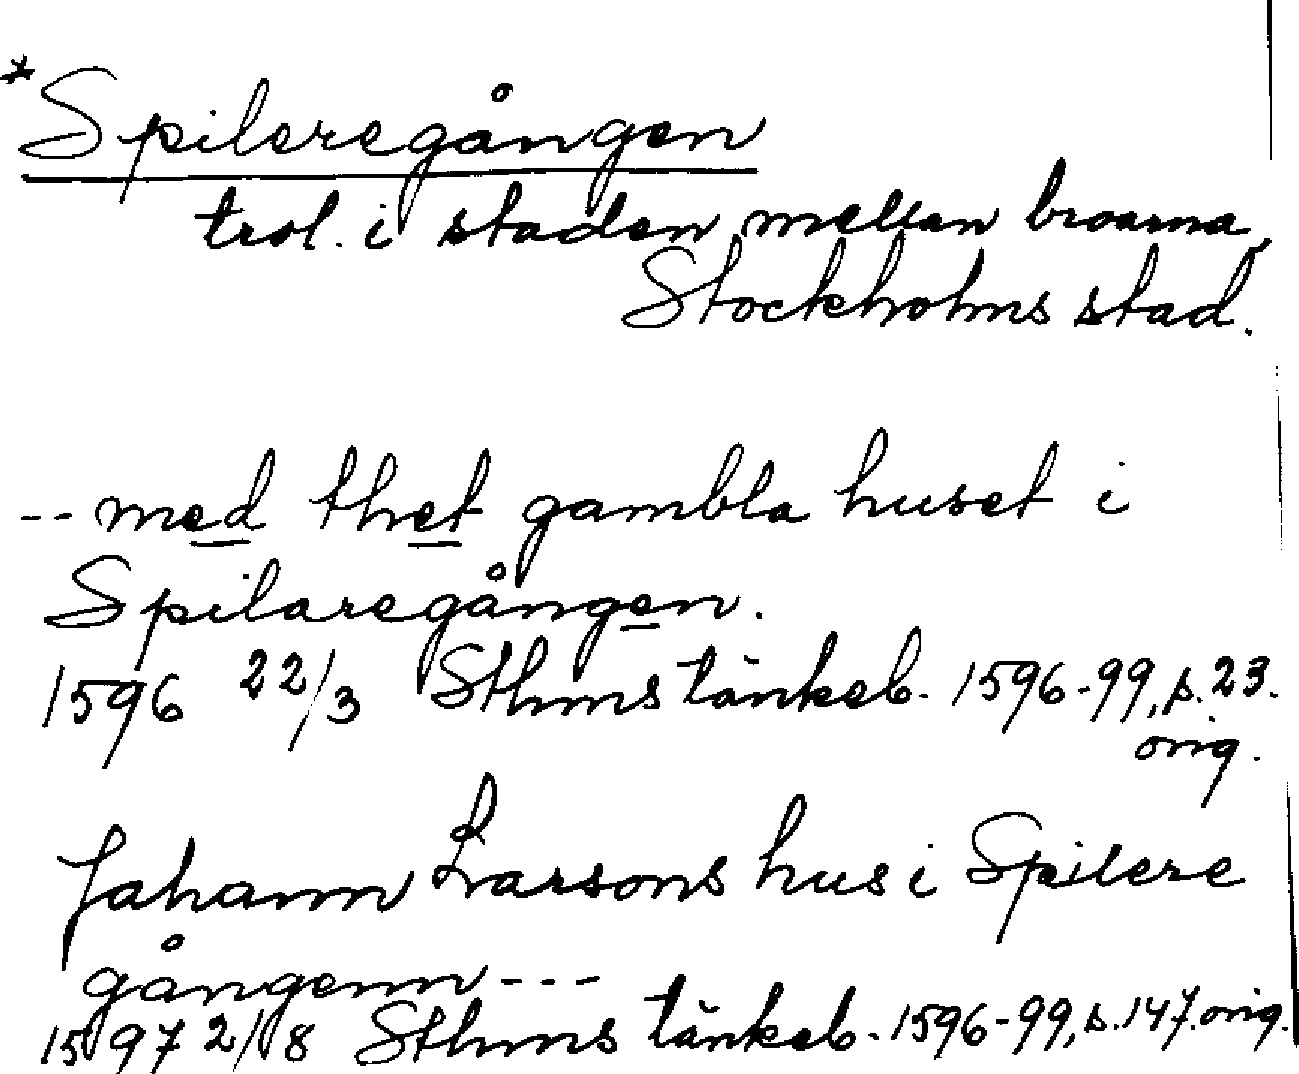 *Spileregången
trol. i staden mellan broarna,
Stockholms stad.
-- med thet gambla huset i
Spilaregången.
1596 22/3 Sthms tänkeb. 1596-99, s. 23.
orig.
Johann Larsons hus i Spilere
gångenn ---
1597 2/8 Sthms tänkeb. 1596-99, s. 147. orig.